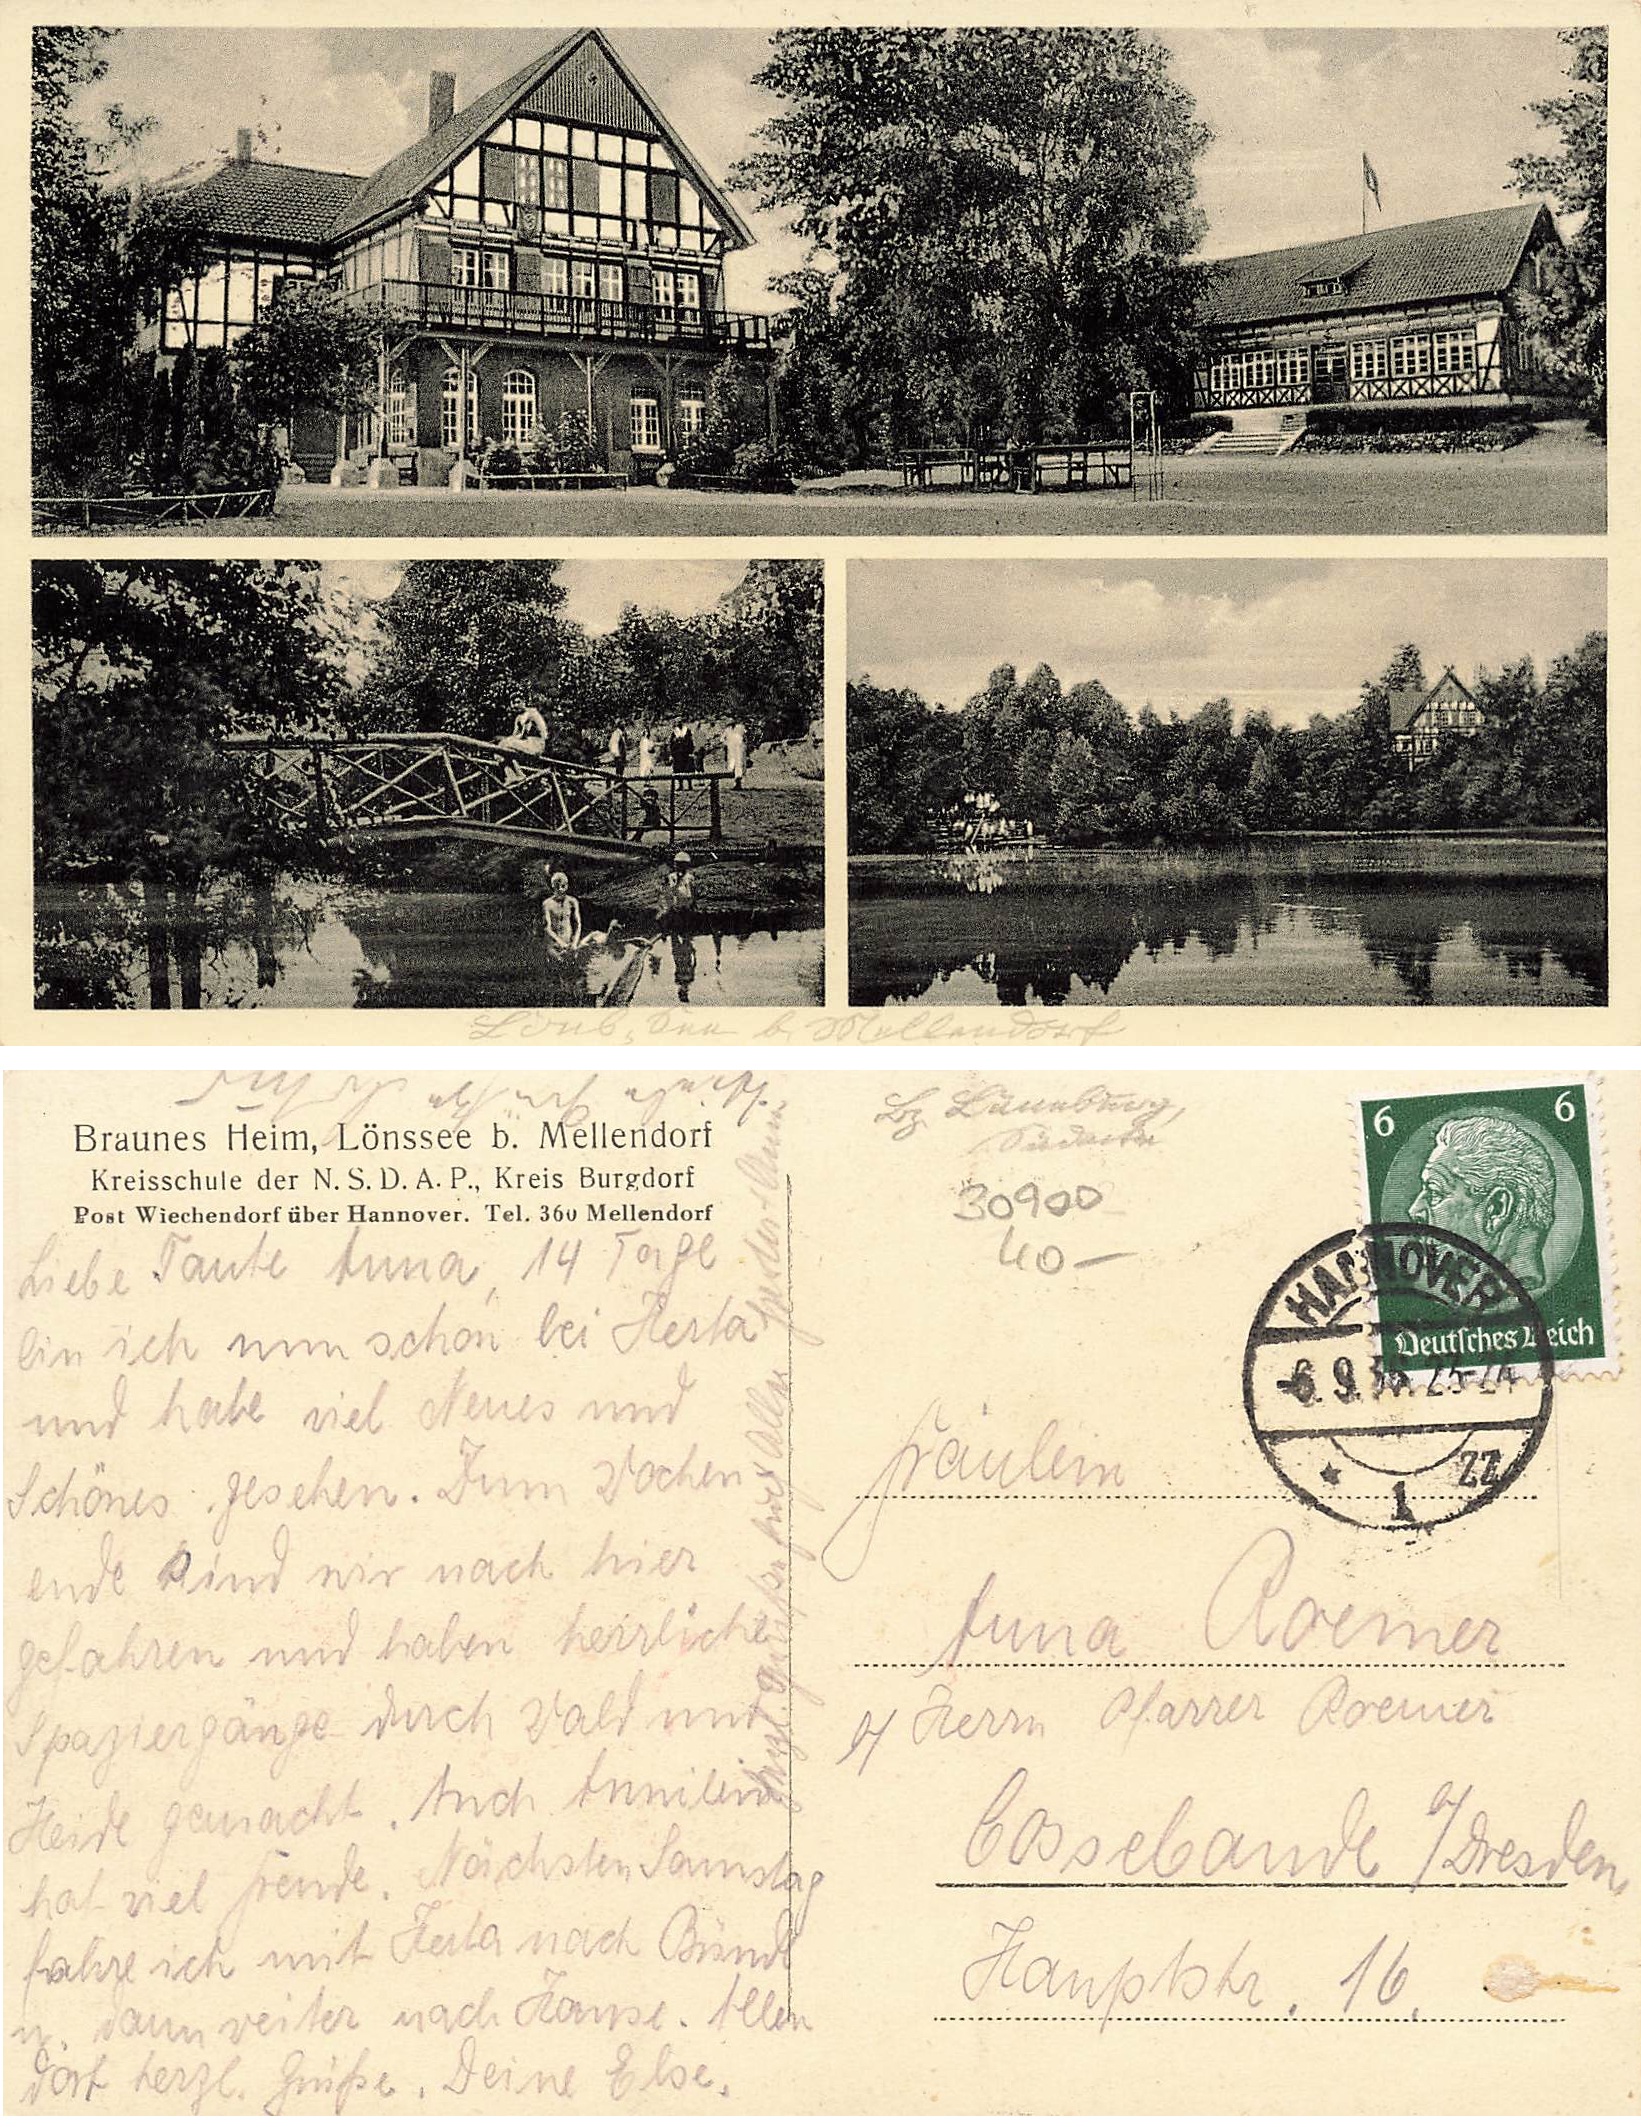 Löns-See b. Mellendorf
Braunes Heim, Lönssee b. Mellendorf
Kreisschule der N.S.D.A.P., Kreis Burgdorf
Post Wiechendorf über Hannover. Tel. 360 Mellendorf
Liebe Tante Anna, 14 Tage
bin ich nun schon bei Herta
und habe viel Neues und
Schönes gesehen. Zum Wochen
ende sind wir nach hier
gefahren und haben herrliche
Spaziergänge durch Wald und
Heide gemacht. Auch Annilein
hat viel Freude. Nächsten Samstag
fahre ich mit Herta nach Bünde
u. dann weiter nach Hause. Allen
dort herzl. Grüße. Deine Else.
Herzl. Grüße Euch Allen
Bz. Lüneburg,
30900
40 –
6 6
Deutsches Reich
HANNOVER
-6.9.36. 23-24
* 1 zz
Fräulein
Anna Roemer
b/ Herrn Pfarrer Roemer
Cossebaude b/Dresden,
Hauptstr. 16.